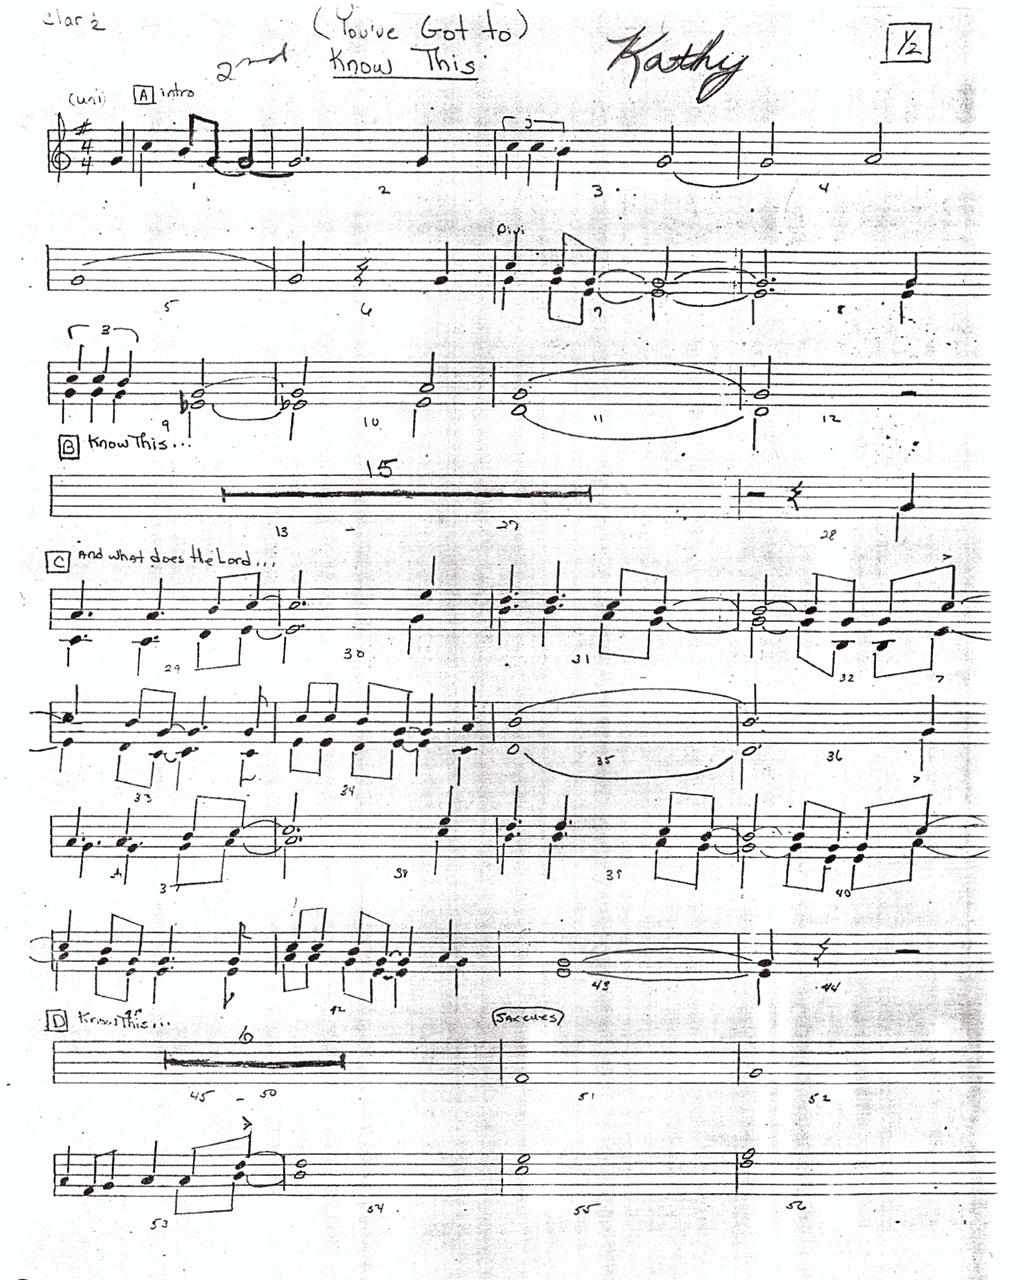 Clar 2
(You've Got to)
Know This
2nd
Kathy
1/2
(uni) A intro
4
4
3
1 2 3 4
Divi
5 6 7 8
3
9 10 11 12
B Know This...
15
13 - 27 28
C And what does the Lord...
29 30 31 32
33 34 35 36
37 38 39 40
42 43 44
D Know This... Sax cues
6
45 - 50 51 52
53 54 55 56